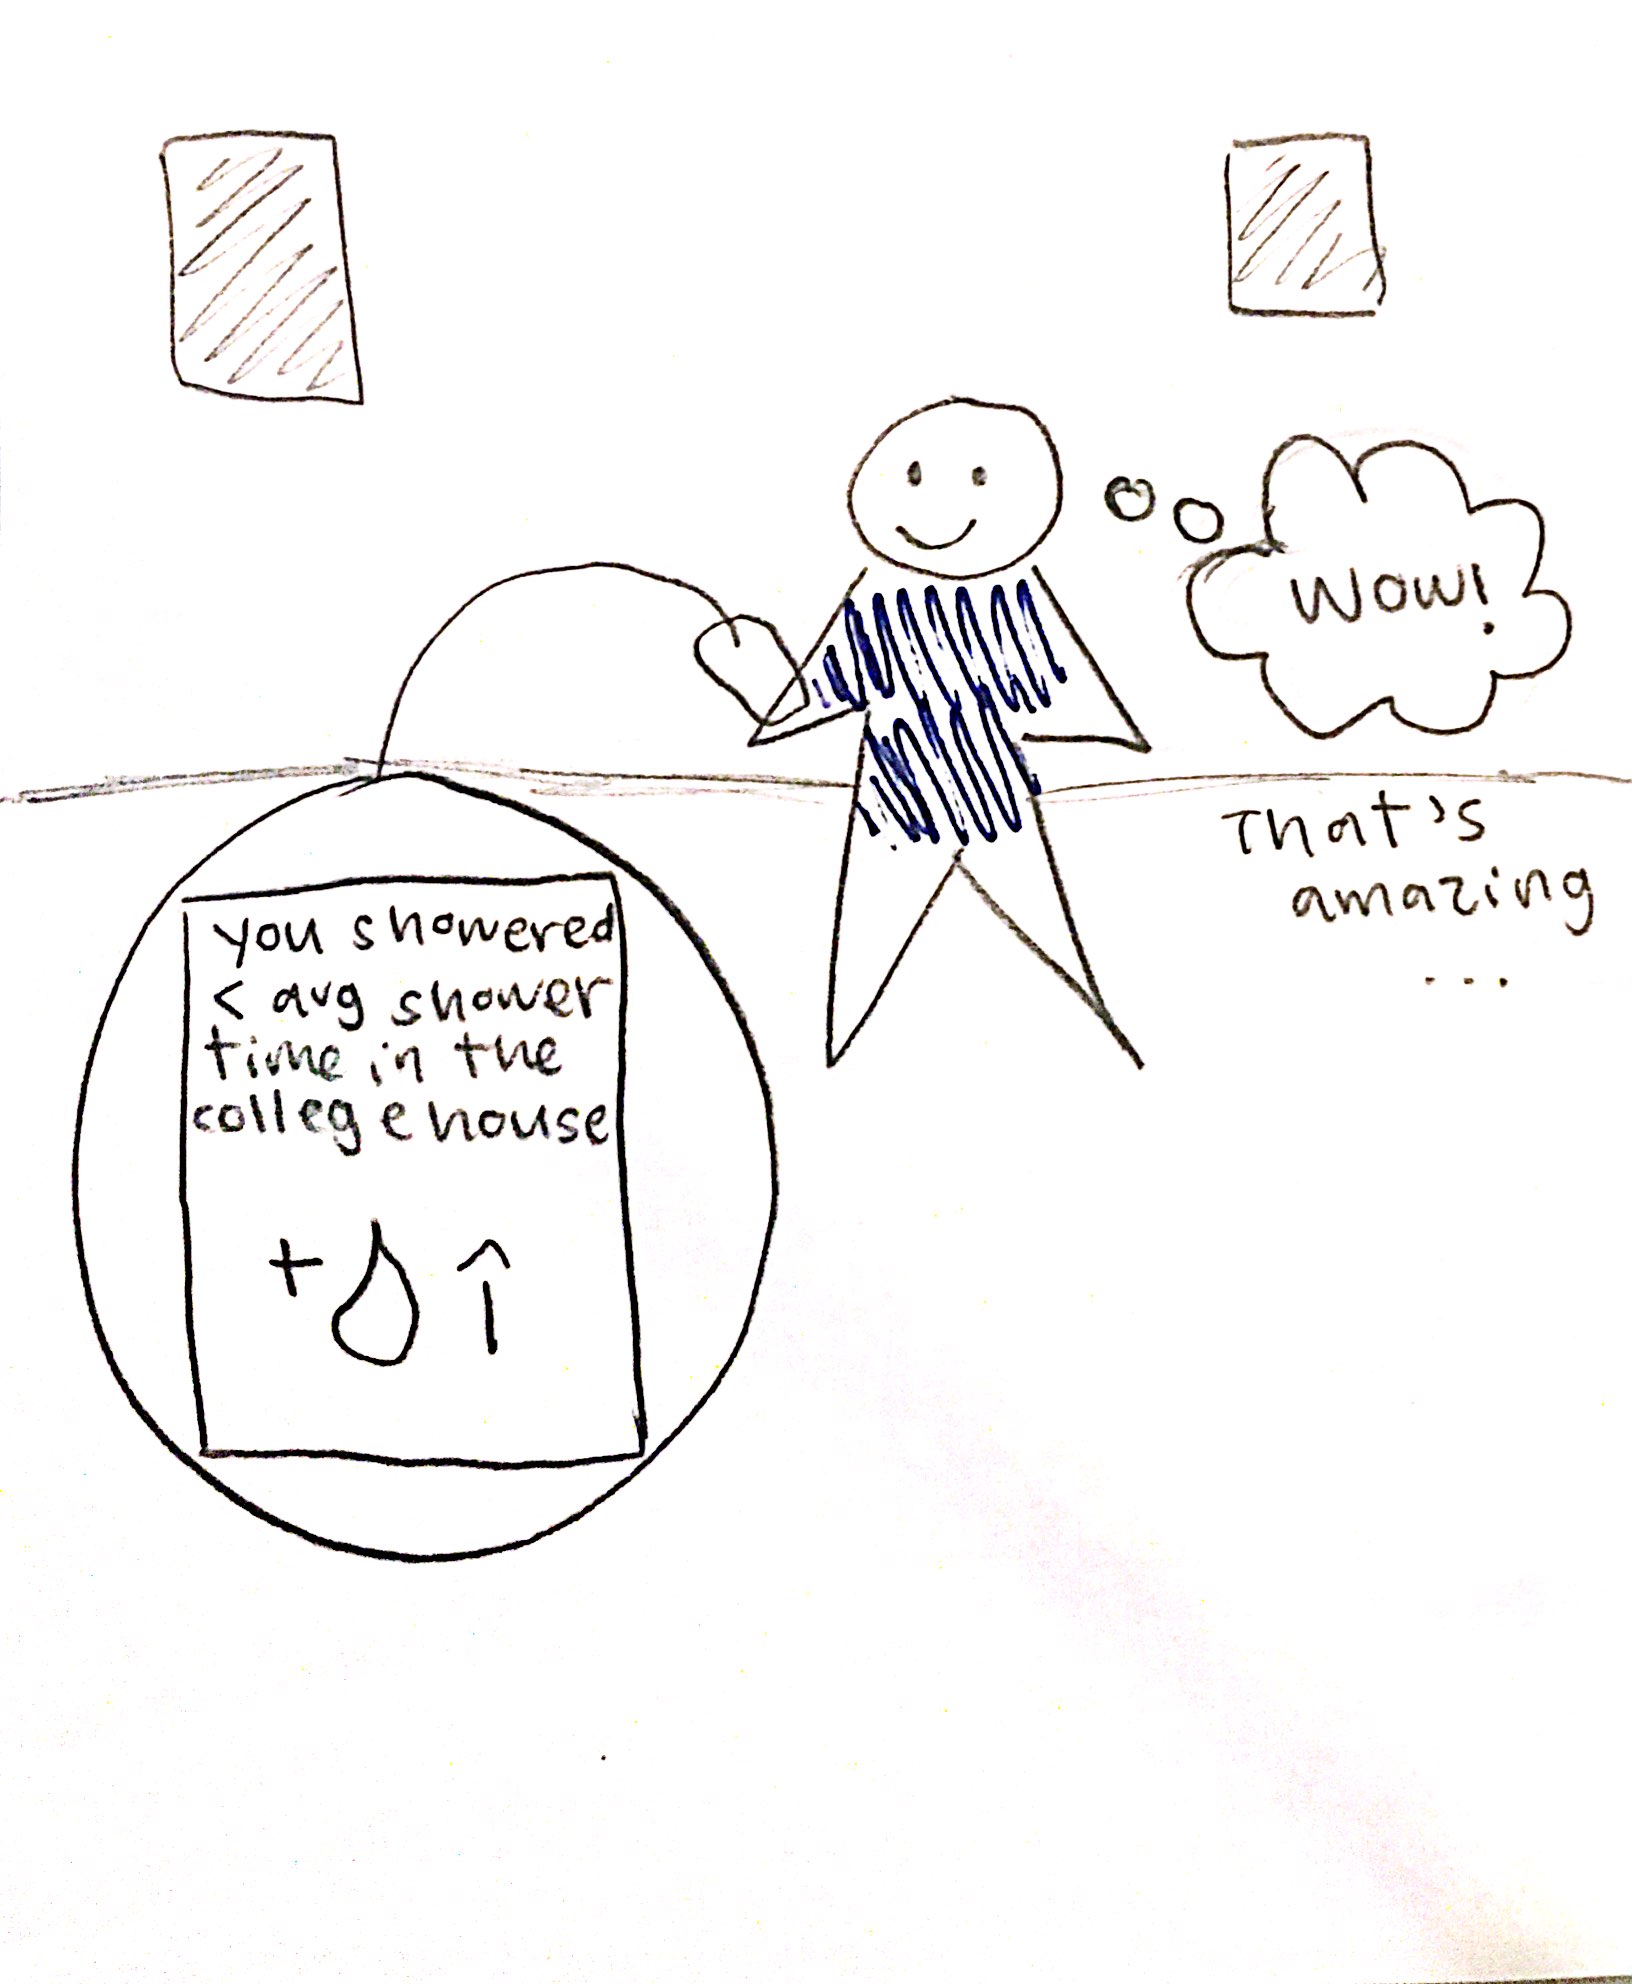 Wow!
That's
amazing
...
you showered
< avg shower
time in the
college house
+ ↑